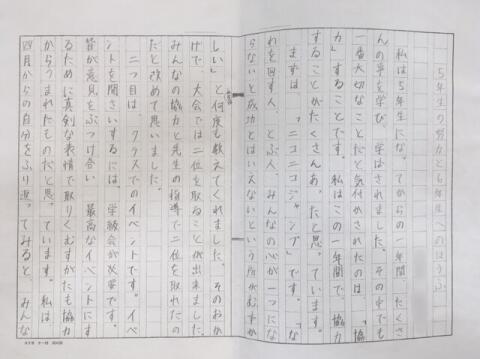 ５年生の努力と６年生へのほうふ
私は５年生になってからの一年間、たくさ
んの事を学び、学ばされました。その中でも
一番大切なことだと気付かされたのは、「協
力」することです。私はこの一年間で、協力
することがたくさんあったと思っています。
まずは「ニコニコジャンプ」です。「な
わを回す人、とぶ人、みんなの心が一つにな
らないと成功とはいえないという所がむずか
しい」と何度も教えてくれました。そのおか
げで、大会では二位を取ることが出来ました。
みんなの協力と先生の指導で二位を取れたの
だと改めて思いました。
二つ目は、クラスでのイベントです。イベ
ントを開さいするには、学級会が必要です。
皆が意見をぶつけ合い、最高なイベントにす
るために真剣な表情で取りくむすがたも協力
からうまれたものだと思っています。私は
四月からの自分をふり返ってみると、みんな